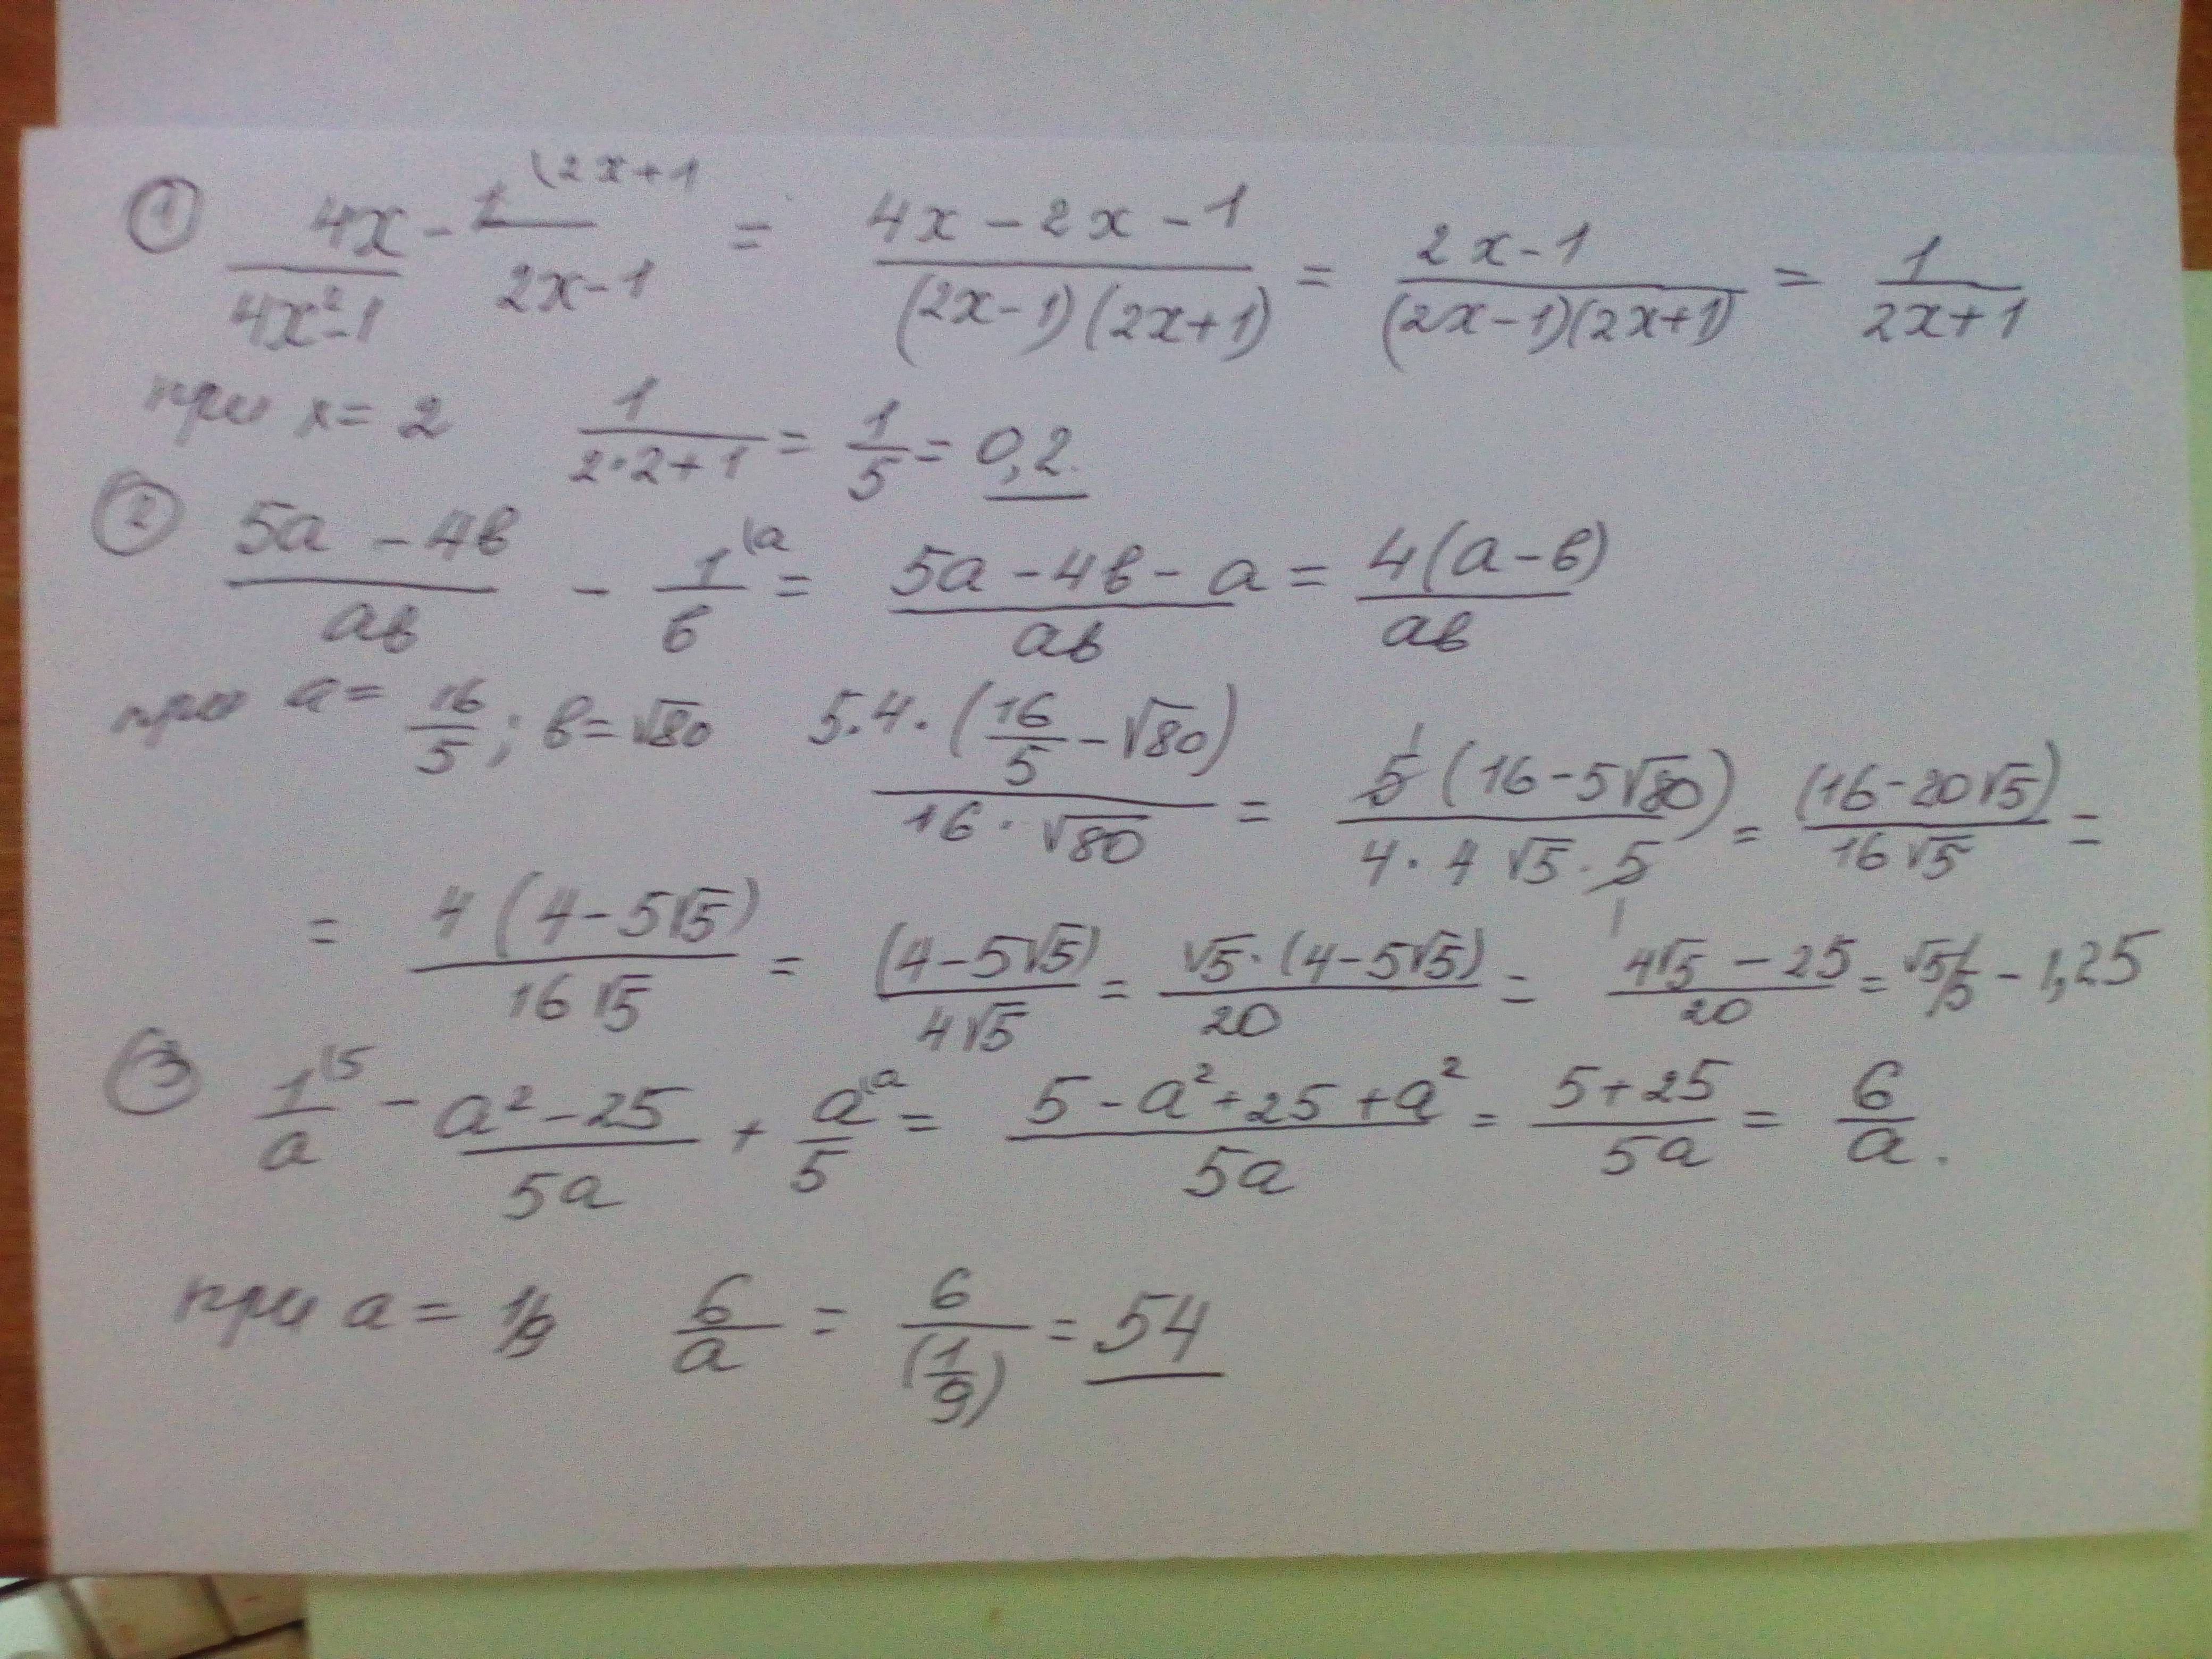 ① 4x/(4x²-1) - 1/(2x-1) (2x+1 = (4x-2x-1)/((2x-1)(2x+1)) = (2x-1)/((2x-1)(2x+1)) = 1/(2x+1)
при x = 2 1/(2·2+1) = 1/5 = 0,2.
② (5a-4в)/(aв) - 1/в (a = (5a-4в-a)/(aв) = 4(a-в)/(aв)
при a = 16/5; в = √80 5·4·(16/5-√80)/(16·√80) = 5(16-5√80)/(4·4√5·5) = (16-20√5)/(16√5) =
= 4(4-5√5)/(16√5) = (4-5√5)/(4√5) = √5·(4-5√5)/20 = (4√5-25)/20 = √5/5 - 1,25
③ 1/a (5 - (a²-25)/(5a) + a/5 (a = (5-a²+25+a²)/(5a) = (5+25)/(5a) = 6/a.
при a = 1/9 6/a = 6/(1/9) = 54